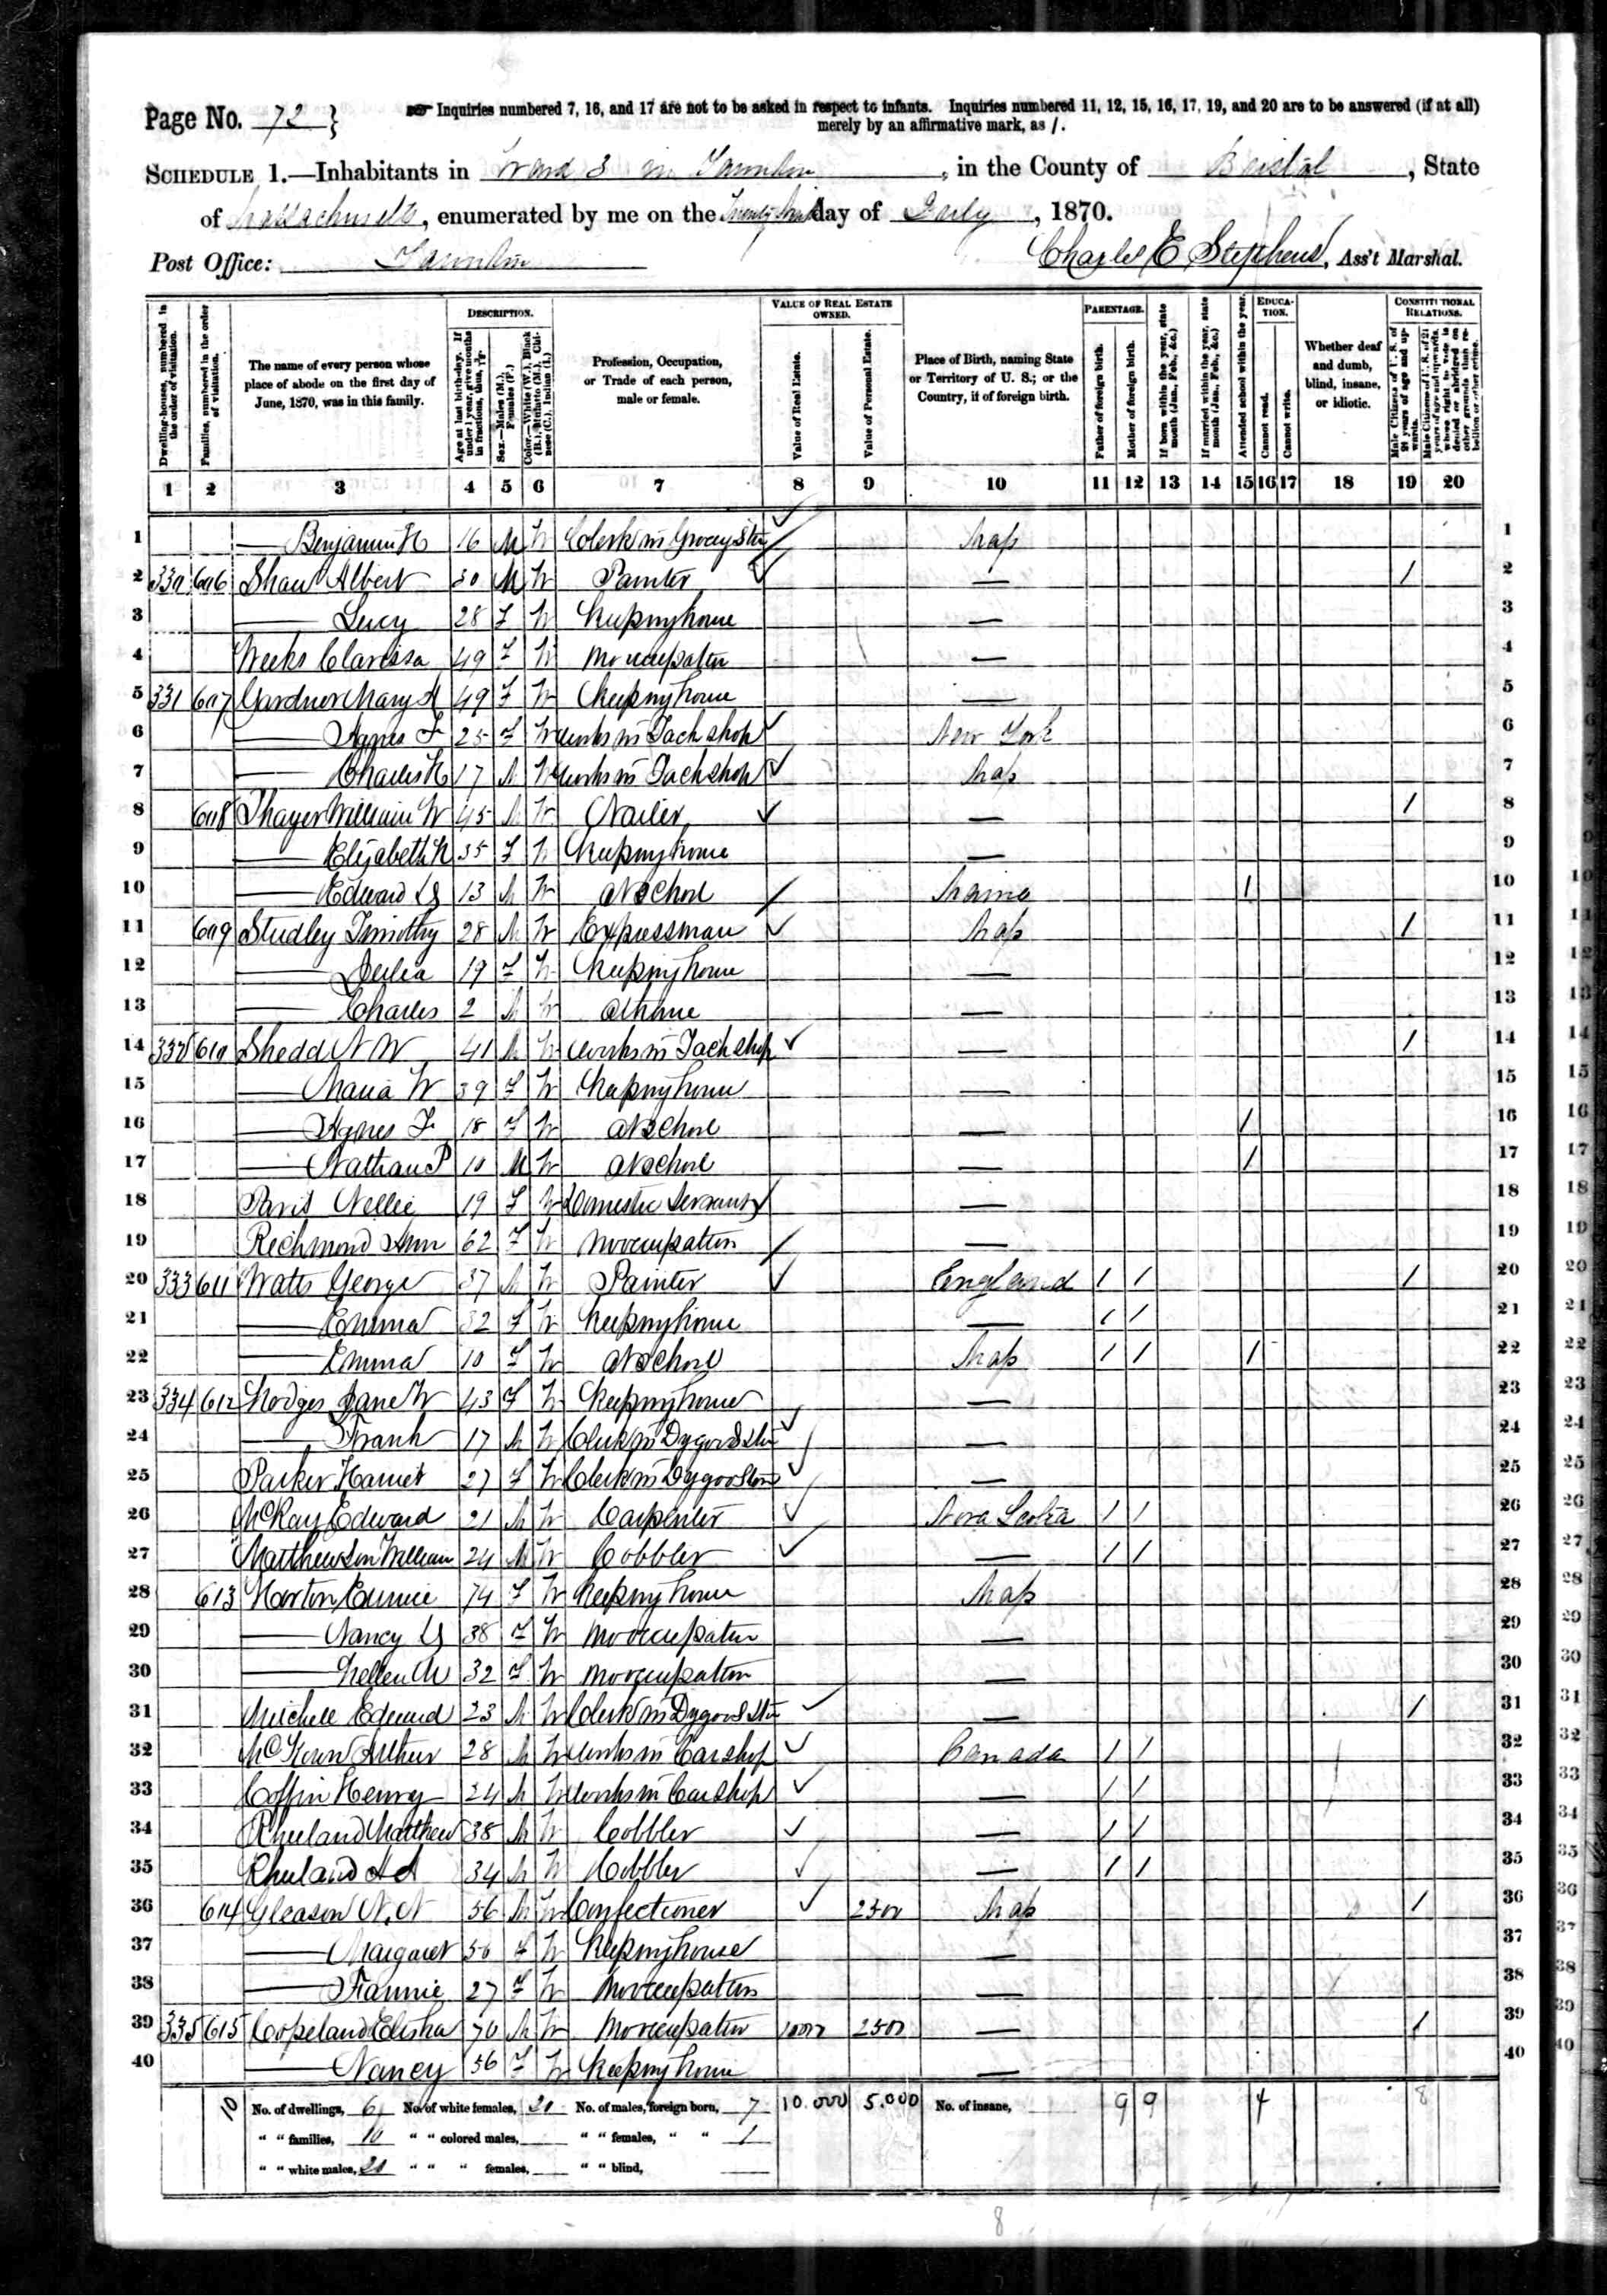 Page No. 72 } Inquiries numbered 7, 16, and 17 are not to be asked in respect to infants. Inquiries numbered 11, 12, 15, 16, 17, 19, and 20 are to be answered (if at all)
merely by an affirmative mark, as /.
SCHEDULE 1.—Inhabitants in Ward 3 in Taunton, in the County of Bristol, State
of Massachusetts, enumerated by me on the day of July, 1870.
Post Office: Taunton Charles E Stephens, Ass't Marshal.
DESCRIPTION. VALUE OF REAL ESTATE OWNED. PARENTAGE. EDUCATION. CONSTITUTIONAL RELATIONS.
Dwelling-houses, numbered in the order of visitation.
Families, numbered in the order of visitation.
The name of every person whose place of abode on the first day of June, 1870, was in this family.
Age at last birth-day. If under 1 year, give months in fractions, thus, 3/12.
Sex.—Males (M.), Females (F.)
Color.—White (W.), Black (B.), Mulatto (M.), Chinese (C.), Indian (I.)
Profession, Occupation, or Trade of each person, male or female.
Value of Real Estate.
Value of Personal Estate.
Place of Birth, naming State or Territory of U. S.; or the Country, if of foreign birth.
Father of foreign birth.
Mother of foreign birth.
If born within the year, state month (Jan., Feb., &c.)
If married within the year, state month (Jan., Feb., &c.)
Attended school within the year.
Cannot read.
Cannot write.
Whether deaf and dumb, blind, insane, or idiotic.
Male Citizens of U. S. of 21 years of age and upwards.
Male Citizens of U. S. of 21 years of age and upwards, whose right to vote is denied or abridged on other grounds than rebellion or other crime.
1 2 3 4 5 6 7 8 9 10 11 12 13 14 15 16 17 18 19 20
1 — Benjamin H 16 M W Clerk in Grocery Store Mass 1
2 330 606 Shaw Albert 30 M W Painter — / 2
3 — Lucy 28 F W Keeping house — 3
4 Weeks Clarissa 49 F W No occupation — 4
5 331 607 Gardner Mary A 49 F W Keeping house — 5
6 — Agnes F 25 F W Works in Tack shop New York 6
7 — Charles H 17 M W Works in Tack shop Mass 7
8 608 Thayer William W 45 M W Nailer — / 8
9 — Elizabeth N 35 F W Keeping house — 9
10 — Edward G 13 M W At School Maine / 10
11 609 Studley Timothy 28 M W Expressman Mass / 11
12 — Delia 19 F W Keeping house — 12
13 — Charles 2 M W At home — 13
14 332 610 Shedd N W 41 M W Works in Tack shop — / 14
15 — Maria W 39 F W Keeping house — 15
16 — Agnes F 18 F W At School — / 16
17 — Nathan P 10 M W At School — / 17
18 Paris Nellie 19 F W Domestic Servant — 18
19 Richmond Ann 62 F W No occupation — 19
20 333 611 Watts George 37 M W Painter England / / / 20
21 — Emma 32 F W Keeping house — / / 21
22 — Emma 10 F W At School Mass / / / 22
23 334 612 Hodges Jane W 43 F W Keeping house — 23
24 — Frank 17 M W Clerk in Drygood Store — 24
25 Parker Harriet 27 F W Clerk in Drygood Store — 25
26 McKay Edward 21 M W Carpenter Nova Scotia / / 26
27 Matthewson William 24 M W Cobbler — / / 27
28 613 Horton Eunice 74 F W Keeping house Mass 28
29 — Nancy G 38 F W No occupation — 29
30 — Hellen M 32 F W No occupation — 30
31 Mitchell Edward 23 M W Clerk in Drygood Store — / 31
32 Arthur 28 M W Works in Car shop Canada / / 32
33 Coffin Henry 24 M W Works in Car shop — / / 33
34 Rhuland Matthew 38 M W Cobbler — / / 34
35 Rhuland A A 34 M W Cobbler — / / 35
36 614 Gleason N. N 56 M W Confectioner 2500 Mass / 36
37 — Margaret 56 F W Keeping house — 37
38 — Fannie 27 F W No occupation — 38
39 335 615 Copeland Elisha 70 M W No occupation 10000 2500 — / 39
40 — Nancy 56 F W Keeping house — 40
10 No. of dwellings, 6 No. of white females, 20 No. of males, foreign born, 7 10.000 5.000 No. of insane, 9 9 4 8
" " families, 10 " " colored males, " " females, " " 1
" " white males, 20 " " " females, " " blind,
8